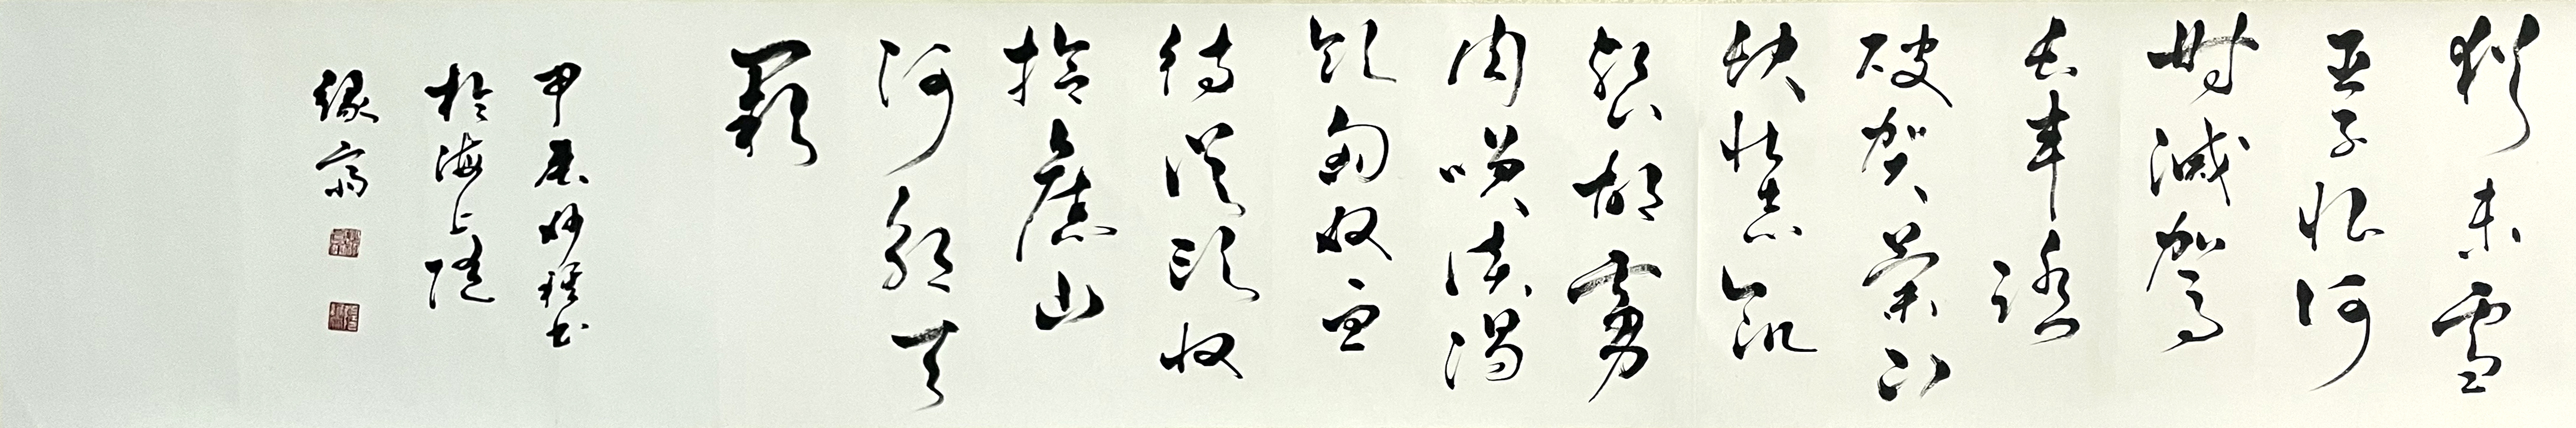 猶未雪
臣子恨何
時滅駕
長車踏
破賀蘭山
缺壯志飢
餐胡虜
肉笑談渴
飲匈奴血
待從頭收
拾舊山
河朝天
闕
甲辰書
於海上隨
緣齋